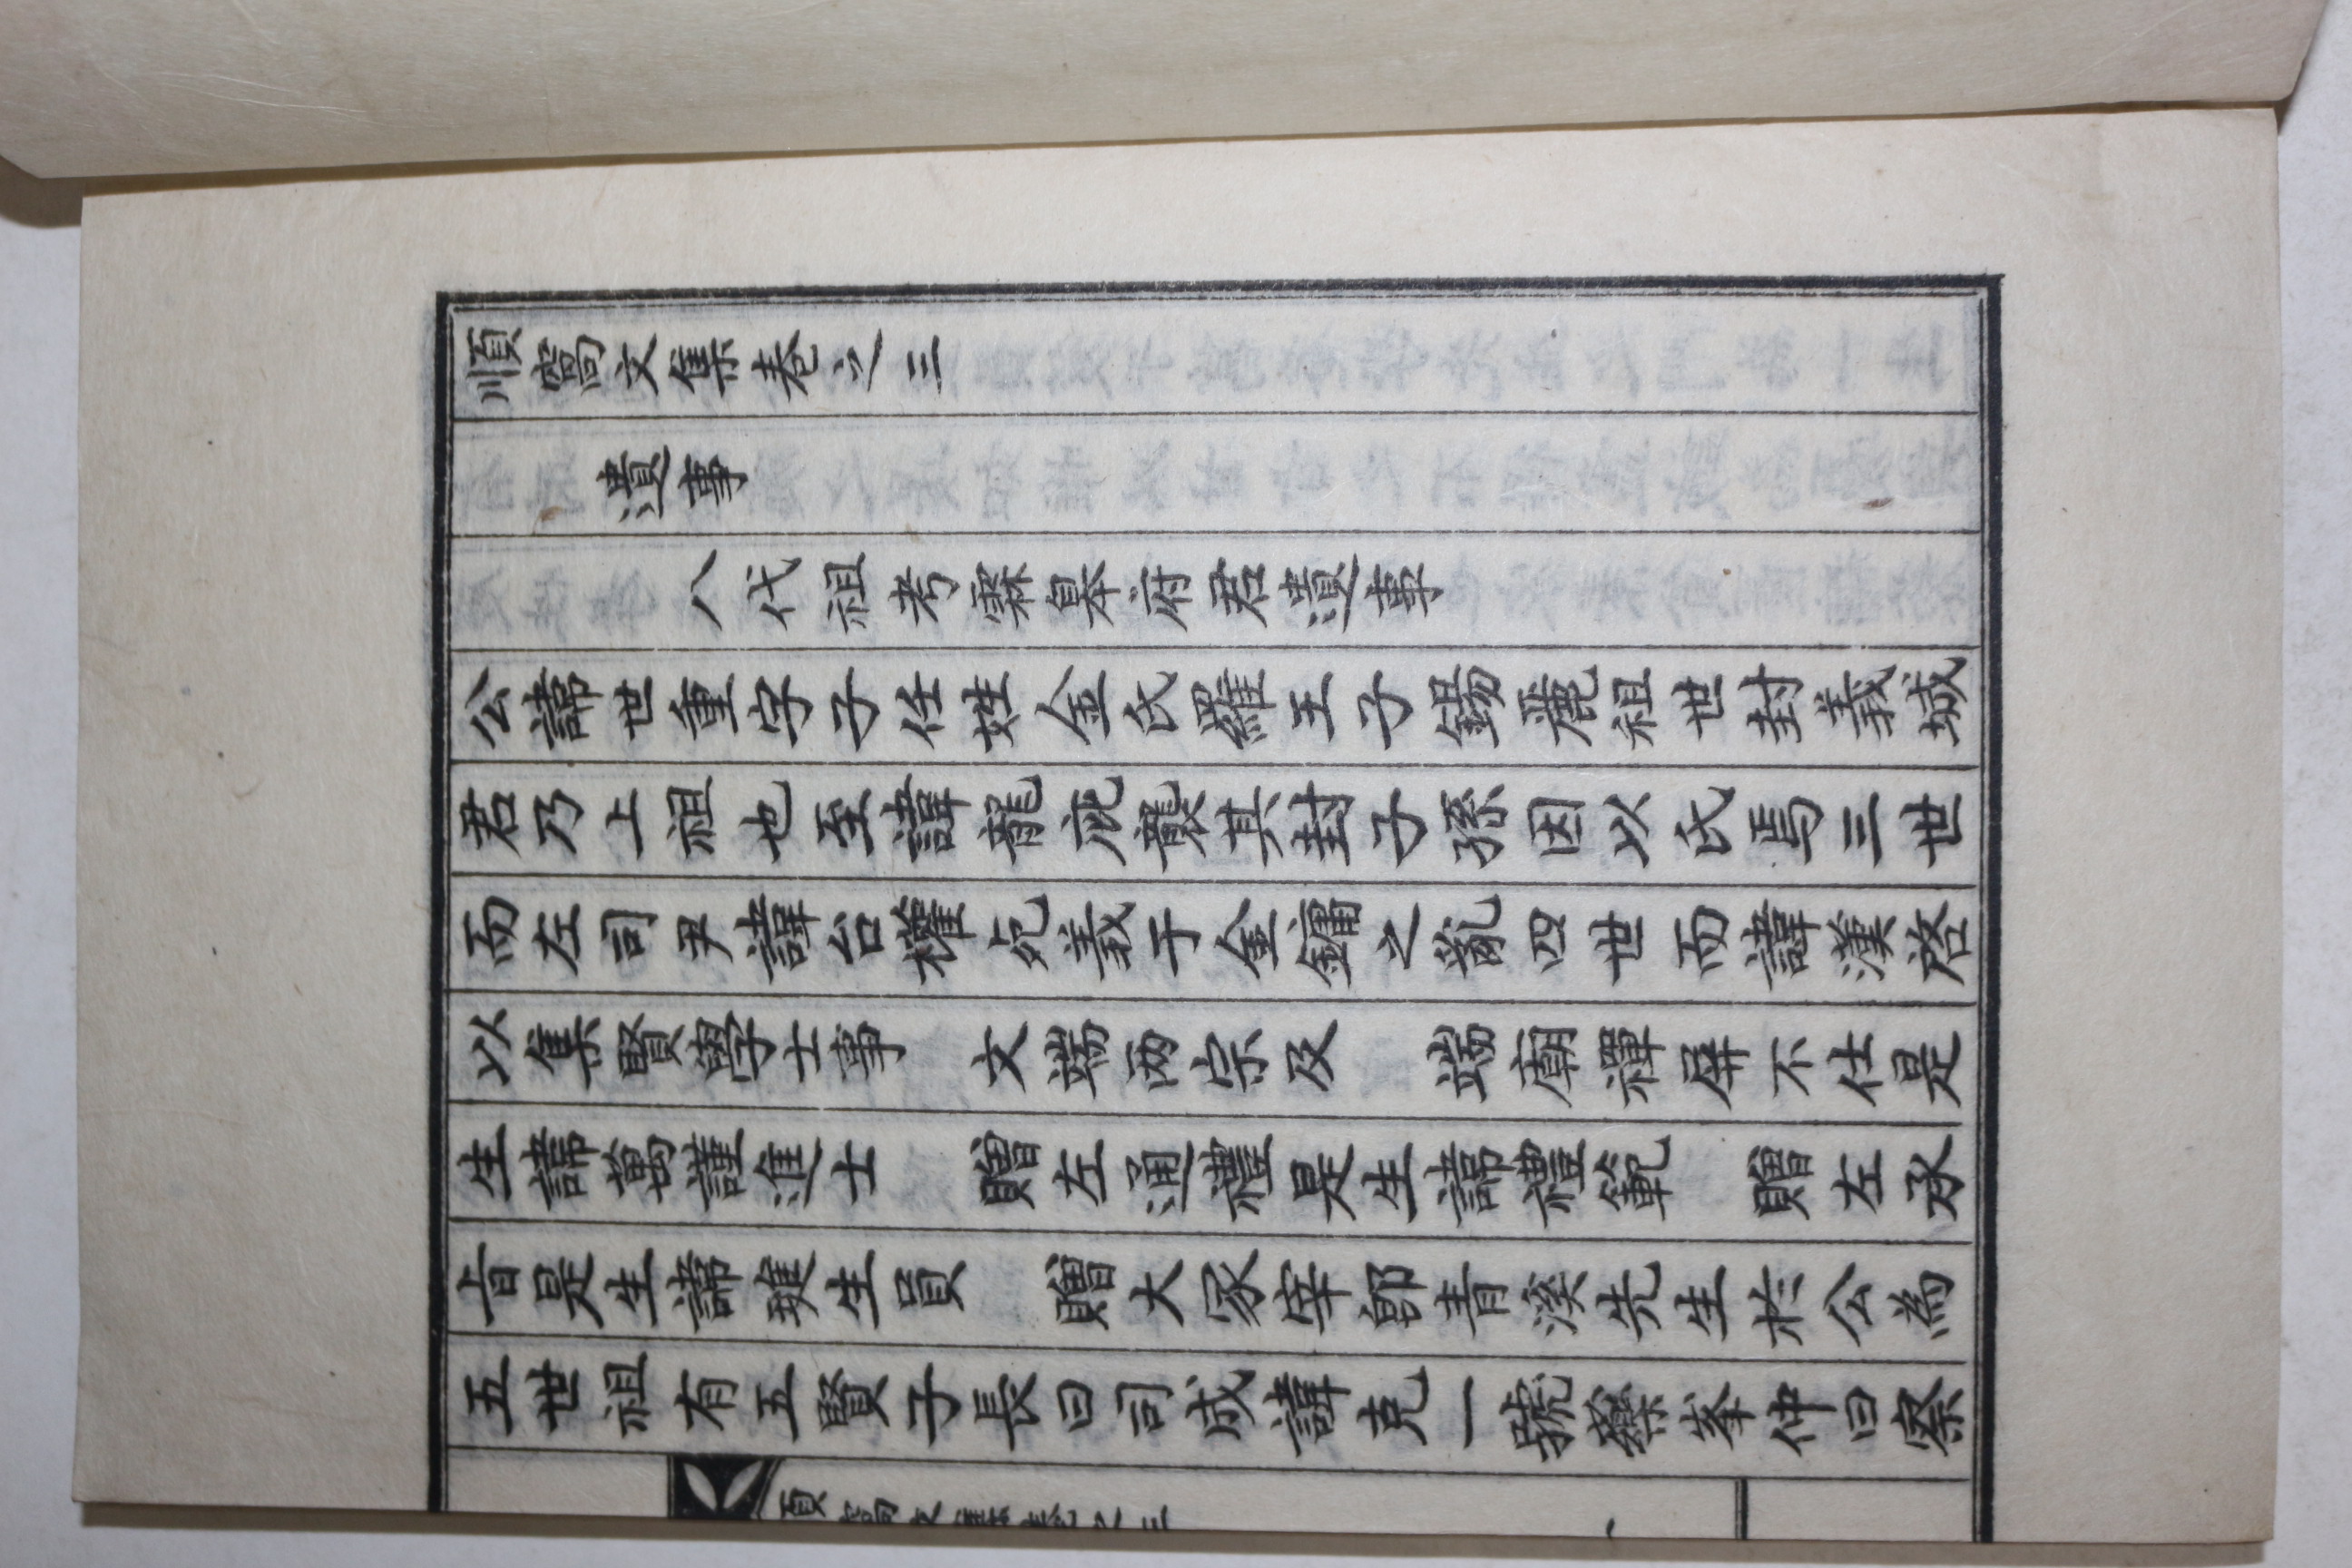 順窩文集卷之三
遺事
八代祖考霖皐府君遺事
公諱世重字子任姓金氏羅王子錫麗祖世封義城
君乃上祖也至諱龍庇襲其封子孫因以氏焉三世
而左司尹諱台權死義于金鏞之亂四世而諱漢啓
以集賢學士事 文端两宗及 端廟禪屏不仕是
生諱萬謹進士 贈左通禮是生諱禮範 贈左承
旨是生諱璡生員 贈大冢宰卽青溪先生於公為
五世祖有五賢子長曰司成諱克一號藥峯仲曰察
順窩文集卷之三 一